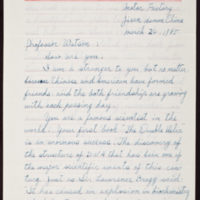 Water Factory
Jiaan County China
March 26, 1985
Professor Watson:
How are you.
I am a stranger to you, but no matter
Chinese and American have joined
friends, and the both friendship are growing
with each passing day.
You are a famous scientist in the
world. Your first book "The Double Helix"
is an enormous success. The discovery of
the structure of DNA that has been one of
the major scientific events of this cen-
tury just as Sir Lawrence Bragg said
It has caused an explosion in biochemistry